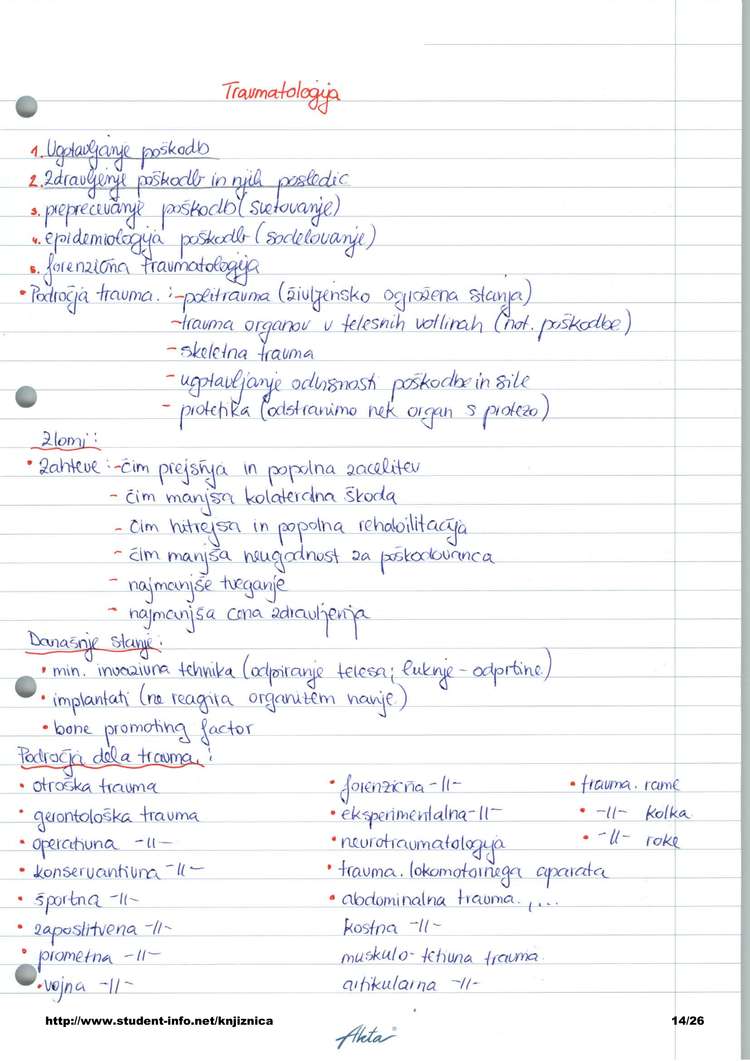 Travmatologija
1. Ugotavljanje poškodb
2. Zdravljenje poškodb in njih posledic
3. preprečevanje poškodb (svetovanje)
4. epidemiologija poškodb (sodelovanje)
5. forenzična travmatologija
• Področja travma. : - politravma (življensko ogrožena stanja)
- travma organov v telesnih votlinah (not. poškodbe)
- skeletna travma
- ugotavljanje odvisnosti poškodbe in sile
- protetika (odstranimo nek organ s protezo)
Zlomi:
• Zahteve : - čim prejšnja in popolna zacelitev
- čim manjša kolateralna škoda
- čim hitrejša in popolna rehabilitacija
- čim manjša neugodnost za poškodovanca
- najmanjše tveganje
- najmanjša cena zdravljenja
Današnje stanje:
• min. invazivna tehnika (odpiranje telesa; luknje - odprtine)
• implantati (ne reagira organizem nanje)
• bone promoting factor
Področja dela travma. :
• otroška travma
• gerontološka travma
• operativna -||-
• konservantivna -||-
• športna -||-
• zaposlitvena -||-
• prometna -||-
• vojna -||-
• forenzična -||-
• eksperimentalna -||-
• neurotravmatologija
• travma. lokomotornega aparata
• abdominalna travma. , ...
kostna -||-
muskulo-tetivna travma.
artikularna -||-
• travma. rame
• -||- kolka
• -||- roke
http://www.student-info.net/knjiznica
14/26
Akta